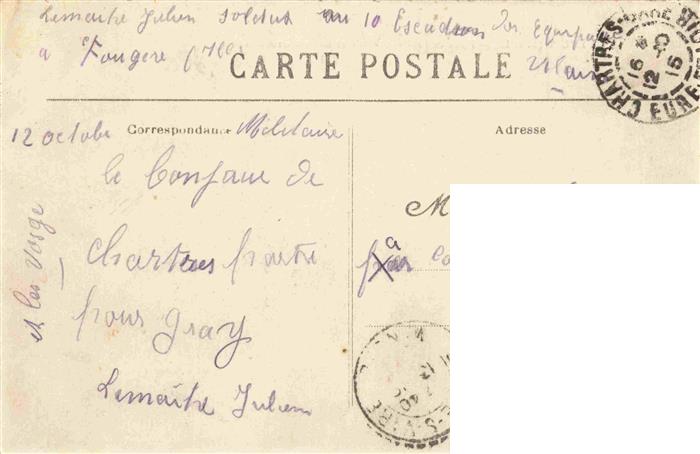 Lemaitre Julien soldat au 10 Escadron des Equipages
a Fougere
CARTE POSTALE
CHARTRES GARE
16
12 10
15
EURE-ET
12 octobre
Correspondance Militaire
Adresse
le Convoie de
M
Chartres partie
a
pour gray
et les Vosge
Lemaitre Julien